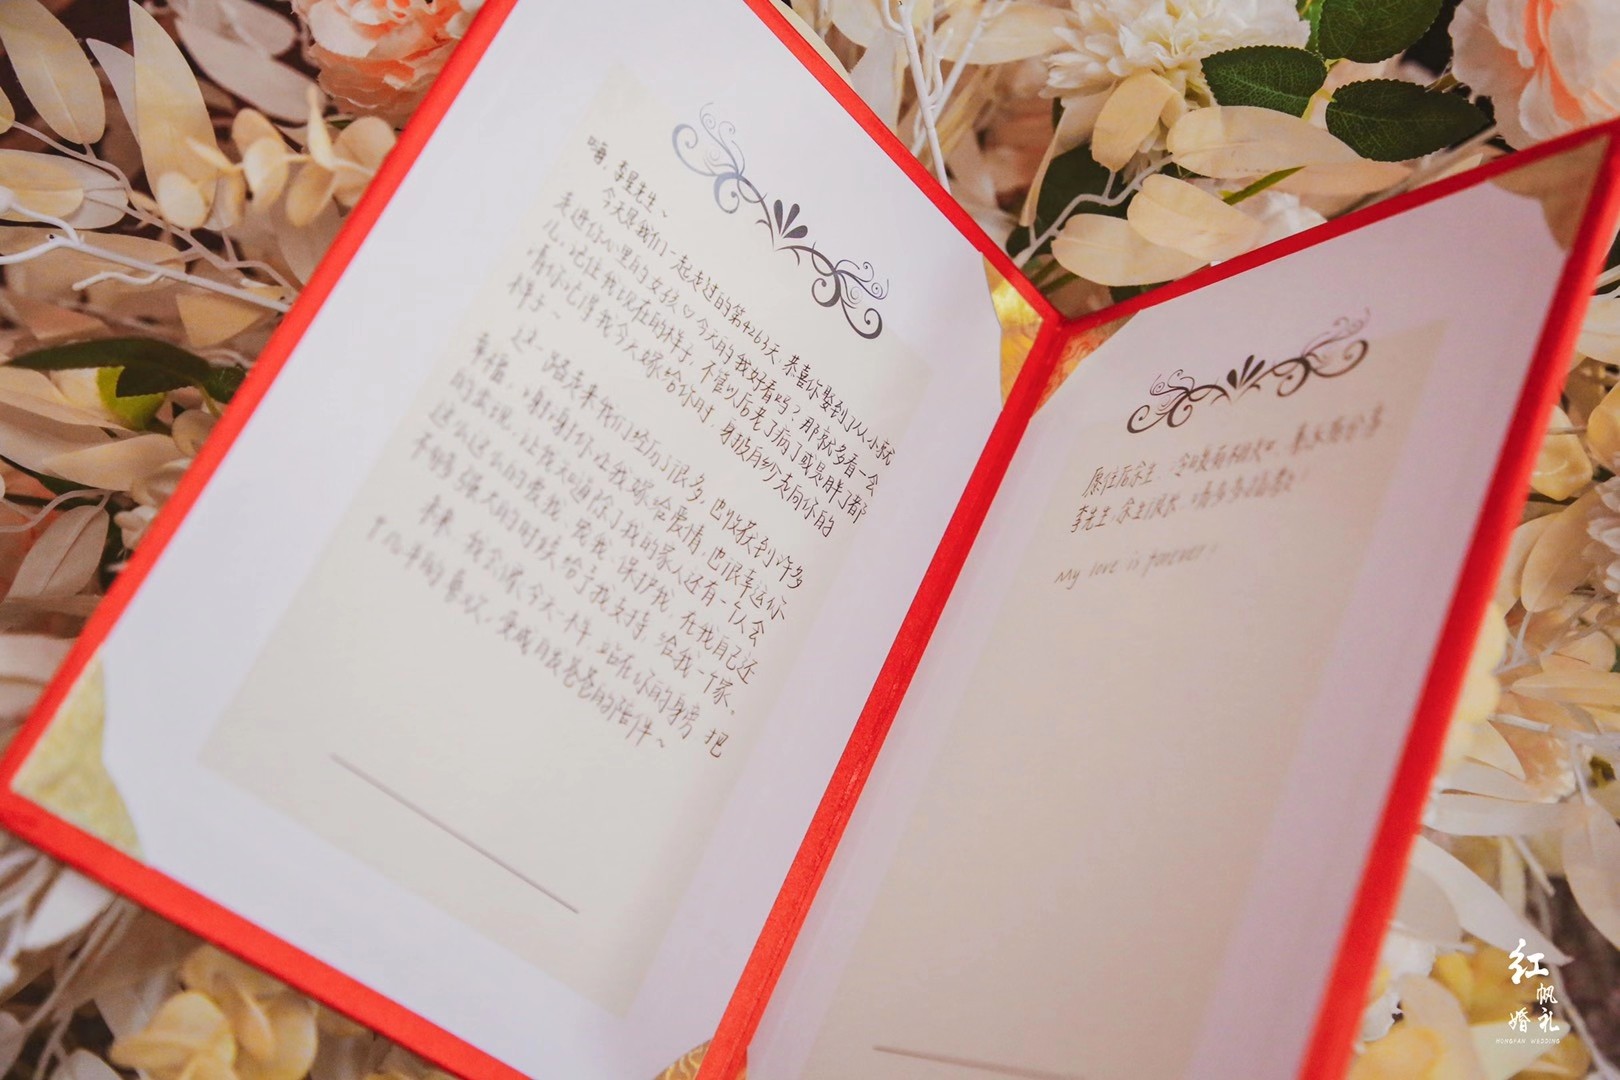 嗨，李星先生~
今天是我们一起走过的第4263天，恭喜你娶到了从小就
走进你心里的女孩♡今天的我好看吗？那就多看一会
儿，记住我现在的样子，不管以后老了病了或是胖了都
请你记得我今天嫁给你时，身披月纱走向你的
样子~
这一路走来我们经历了很多，也收获到许多
幸福，谢谢你让我嫁给爱情，也很幸运你
的出现，让我知道除了我的家人还有一个人会
这么这么的爱我、宠我、保护我，在我自己还
不够强大的时候给了我支持，给我一个家。
未来，我会像今天一样，站在你的身旁 把
十几年的喜欢，变成自成爸爸的陪伴~
愿往后余生，
李先生，余生很长，请多多指教！
My love is forever!
红帆婚礼
HONGFAN WEDDING